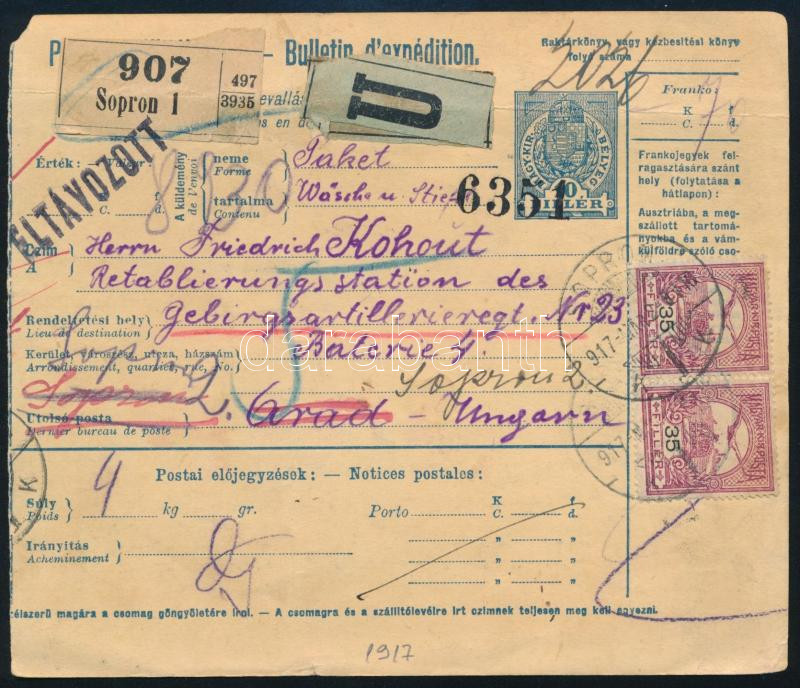 P — Bulletin d'expédition.
Raktárkönyv, vagy kézbesítési könyv
folyó száma
907
Sopron 1
497
3935
U
2026
Franko:
K f
C. d.
70
ELTÁVOZOTT
Érték: Valeur:
K
C.
A küldemény
de l'envoi
neme
Forme
Paket
tartalma
Contenu
Wäsche u.
8930
6351
MAGY. KIR. BÉLYEG
10 FILLÉR
Frankojegyek fel-
ragasztására szánt
hely (folytatása a
hátlapon):
Ausztriába, a meg-
szállott tartomá-
nyokba és a vám-
külföldre szóló cso-
Czím
A
Herrn Friedrich Kohout
Retablierungsstation des
Rendeltetési hely
Lieu de destination
Gebirgsartillerieregt. Nr 23
Kerület (városrész), utcza, házszám
Arrondissement, quartier, rue, No.
Baterie 4.
Sopron 2.
Sopron 2.
Utolsó posta
Dernier bureau de poste
Arad - Ungarn
SOPRON
917
K
MAGYAR KIR. POSTA
35 FILLÉR
MAGYAR KIR. POSTA
35 FILLÉR
917
K
darabanth
Postai előjegyzések: — Notices postales:
Súly
Poids
4 kg gr.
Porto
K f
C. d.
Irányítás
Acheminement
élszerű magára a csomag göngyöletére írni. — A csomagra és a szállítólevélre írt czímnek teljesen meg kell egyezni.
1917